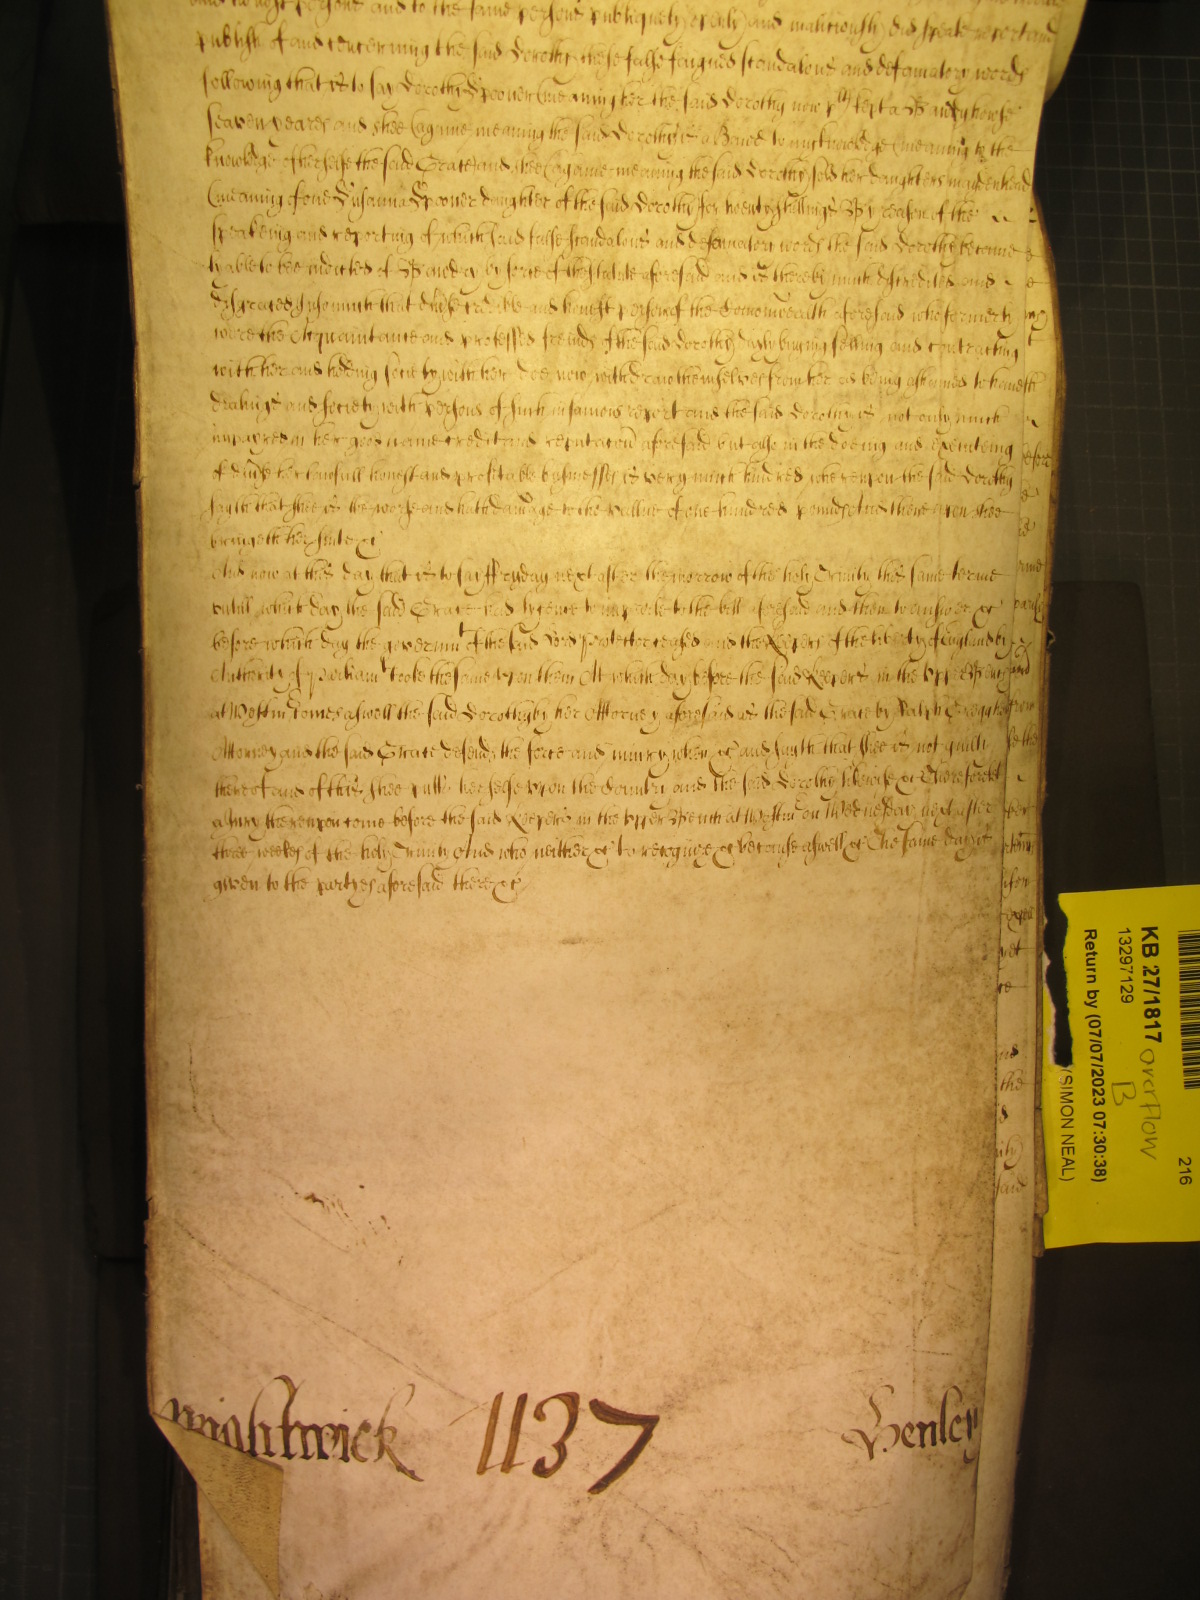 and honest persons and to the same persons publiquely openly and maliciously did speake report and
publish of and concerning the said Dorothy these false faigned scandalous and defamatory words
following that is to say Dorothy Spooner (meaning her the said Dorothy now plt) kept a Bawdy howse
seaven yeares and shee (againe meaning the said Dorothy) is a Bawd to my knowledge (meaning to the
knowledge of her selfe the said Grace) and shee (againe meaning the said Dorothy) sold her daughters maydenhead
(meaning of one Susanna Spooner daughter of the said Dorothy) for twenty shillings By reason of the
speakeing and reporting of which said false scandalous and defamatory words the said Dorothy become
lyable to bee indicted of Bawdry by force of the statute aforesaid and is thereby much discredited and
disgraced Insomuch that divse credible and honest persons of the Comonwealth aforesaid who formerly
were the Acquaintance and professed freinds of the said Dorothy dayly buying selling and contracting
with her and holding society with her doe now withdraw themselves from her as being ashamed to have such
dealings and society with persons of such infamous report and the said Dorothy is not only much
impayred in her good name credit and reputacon aforesaid but also in the doeing and executeing
of divse her lawfull honest and profitable bysinesses is very much hindred whereupon the said Dorothy
sayth that shee is the worse and hath damage to the vallue of one hundred pounds And thereupon shee
bringeth her suite &c
And now at this day that is to say ffryday next after the morrow of the holy Trinity this same terme
untill which day the said Grace had lycence to imparle to the bill aforesaid and then to answer &c
before which day the governmt of the said Lord Protector ceased and the Keepers of the liberty of England by
Authority of Parliamt tooke the same upon them At which day before the said Keepers in the upper Bench
at Westm comes aswell the said Dorothy by her Attorney aforesaid as the said Grace by Ralph Gregg her
Attorney and the said Grace defends the force and iniury when &c and sayth that shee is not guilty
thereof and of this shee putts her selfe upon the Country and the said Dorothy likewise &c Therefore let
a Jury thereupon come before the said Keepers in the upper Bench at Westm on Wednesday next after
three weekes of the holy Trinity And who neither &c to recognize &c because aswell &c The same day is
given to the partyes aforesaid there &c
Wightwick 1137 Henley
KB 27/1817 overflow
B
13297129
Return by (07/07/2023 07:30:38)
(SIMON NEAL)
216